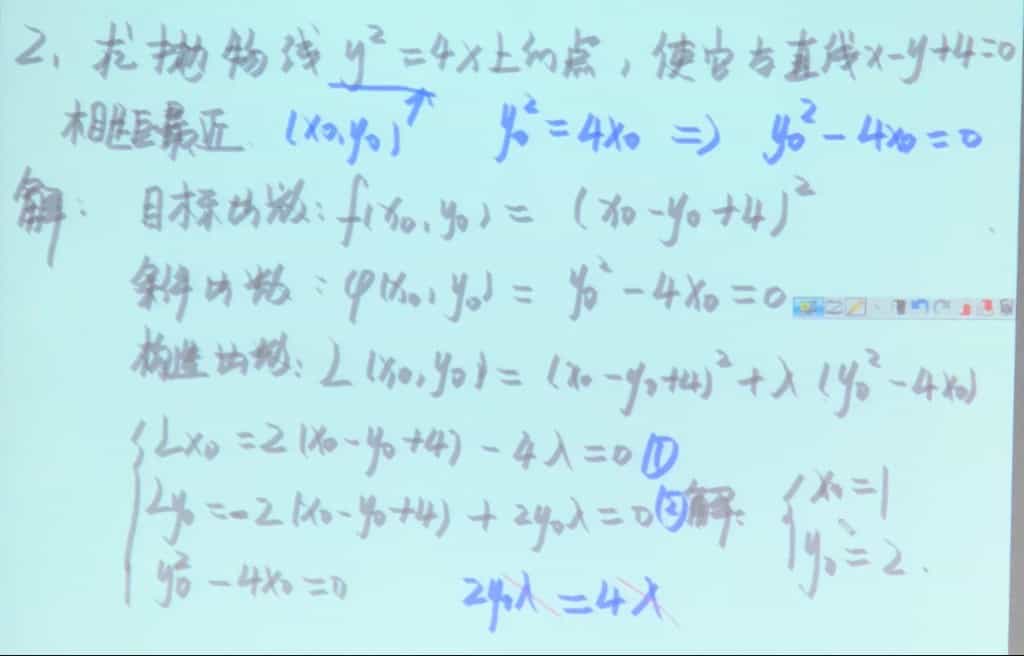 2、求抛物线 y²=4x上的点，使它与直线x-y+4=0
相距最近 (x₀,y₀) y₀²=4x₀ ⇒ y₀²-4x₀=0
解：目标函数：f(x₀,y₀)=(x₀-y₀+4)²
条件函数：φ(x₀,y₀)=y₀²-4x₀=0
构造函数：L(x₀,y₀)=(x₀-y₀+4)²+λ(y₀²-4x₀)
Lx₀=2(x₀-y₀+4)-4λ=0 ①
Ly₀=-2(x₀-y₀+4)+2y₀λ=0 ② 解：{x₀=1
y₀²-4x₀=0 2y₀λ=4λ y₀=2.